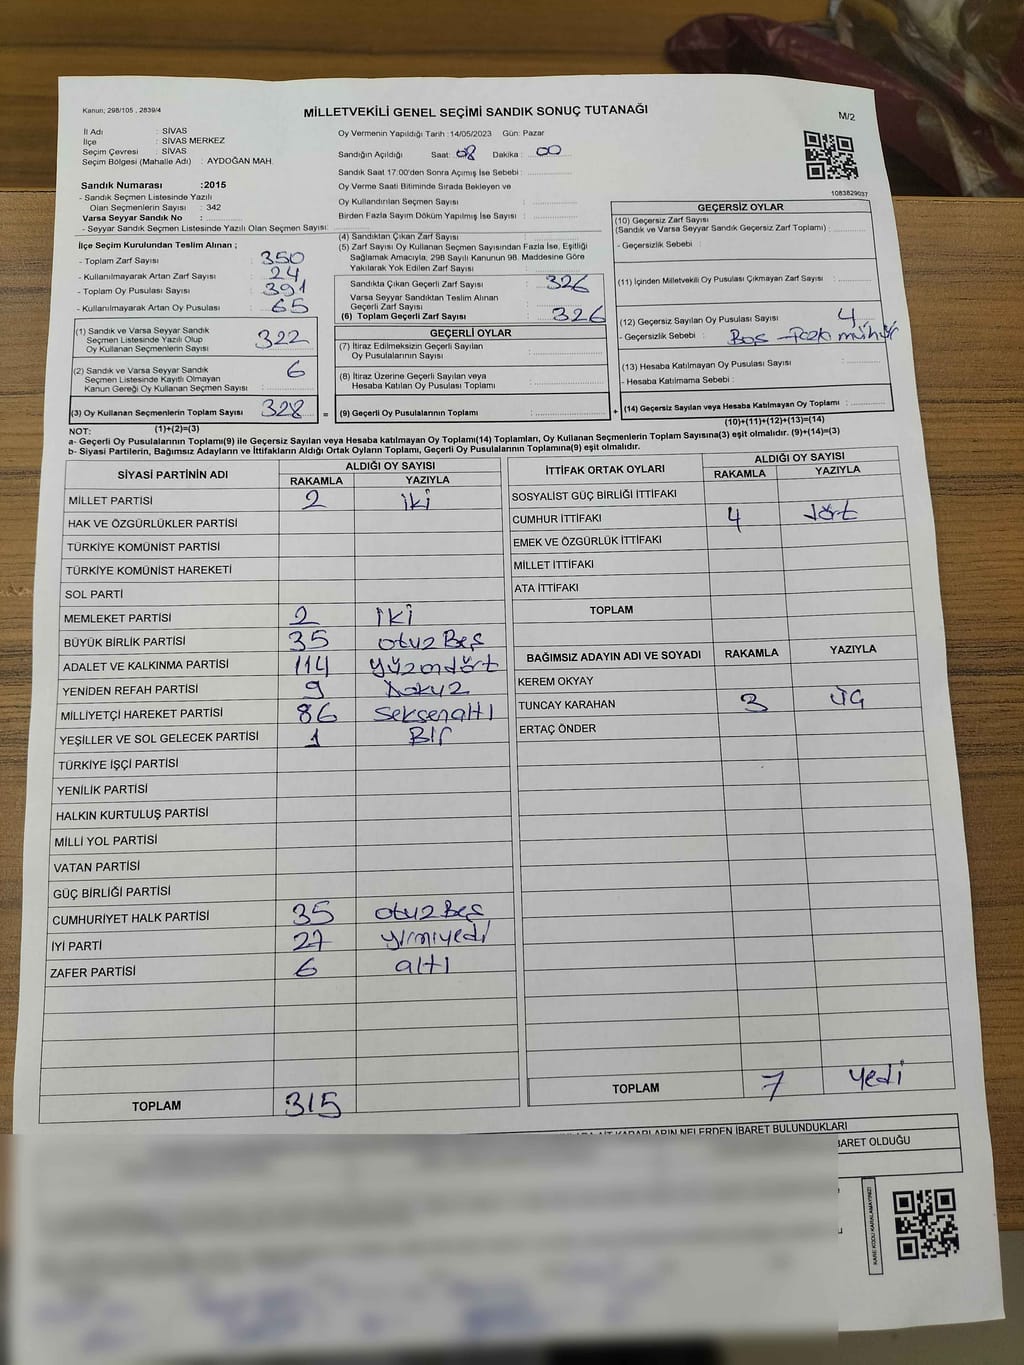 Kanun; 298/105 , 2839/4
MİLLETVEKİLİ GENEL SEÇİMİ SANDIK SONUÇ TUTANAĞI
M/2
İl Adı : SİVAS
İlçe : SİVAS MERKEZ
Seçim Çevresi : SİVAS
Seçim Bölgesi (Mahalle Adı) : AYDOĞAN MAH.
Sandık Numarası :2015
- Sandık Seçmen Listesinde Yazılı
Olan Seçmenlerin Sayısı : 342
Varsa Seyyar Sandık No : ..............
- Seyyar Sandık Seçmen Listesinde Yazılı Olan Seçmen Sayısı:
Oy Vermenin Yapıldığı Tarih :14/05/2023 Gün: Pazar
Sandığın Açıldığı Saat: 08 Dakika : 00
Sandık Saat 17:00'den Sonra Açımış İse Sebebi :
Oy Verme Saati Bitiminde Sırada Bekleyen ve
Oy Kullandırılan Seçmen Sayısı :
Birden Fazla Sayım Döküm Yapılmış İse Sayısı :
1083829037
İlçe Seçim Kurulundan Teslim Alınan ;
- Toplam Zarf Sayısı : 350
- Kullanılmayarak Artan Zarf Sayısı : 24
- Toplam Oy Pusulası Sayısı : 391
- Kullanılmayarak Artan Oy Pusulası : 65
(1) Sandık ve Varsa Seyyar Sandık
Seçmen Listesinde Yazılı Olup
Oy Kullanan Seçmenlerin Sayısı : 322
(2) Sandık ve Varsa Seyyar Sandık
Seçmen Listesinde Kayıtlı Olmayan
Kanun Gereği Oy Kullanan Seçmen Sayısı : 6
(3) Oy Kullanan Seçmenlerin Toplam Sayısı : 328 =
(4) Sandıktan Çıkan Zarf Sayısı :
(5) Zarf Sayısı Oy Kullanan Seçmen Sayısından Fazla İse, Eşitliği
Sağlamak Amacıyla, 298 Sayılı Kanunun 98. Maddesine Göre
Yakılarak Yok Edilen Zarf Sayısı :
Sandıkta Çıkan Geçerli Zarf Sayısı : 326
Varsa Seyyar Sandıktan Teslim Alınan
Geçerli Zarf Sayısı :
(6) Toplam Geçerli Zarf Sayısı : 326
GEÇERLİ OYLAR
(7) İtiraz Edilmeksizin Geçerli Sayılan
Oy Pusulalarının Sayısı :
(8) İtiraz Üzerine Geçerli Sayılan veya
Hesaba Katılan Oy Pusulası Toplamı :
(9) Geçerli Oy Pusulalarının Toplamı : +
GEÇERSİZ OYLAR
(10) Geçersiz Zarf Sayısı
(Sandık ve Varsa Seyyar Sandık Geçersiz Zarf Toplamı) :
- Geçersizlik Sebebi :
(11) İçinden Milletvekili Oy Pusulası Çıkmayan Zarf Sayısı :
(12) Geçersiz Sayılan Oy Pusulası Sayısı : 4
- Geçersizlik Sebebi : Boş - Fazla mühür
(13) Hesaba Katılmayan Oy Pusulası Sayısı :
- Hesaba Katılmama Sebebi :
(14) Geçersiz Sayılan veya Hesaba Katılmayan Oy Toplamı :
NOT: (1)+(2)=(3)
(10)+(11)+(12)+(13)=(14)
a- Geçerli Oy Pusulalarının Toplamı(9) ile Geçersiz Sayılan veya Hesaba katılmayan Oy Toplamı(14) Toplamları, Oy Kullanan Seçmenlerin Toplam Sayısına(3) eşit olmalıdır. (9)+(14)=(3)
b- Siyasi Partilerin, Bağımsız Adayların ve İttifakların Aldığı Ortak Oyların Toplamı, Geçerli Oy Pusulalarının Toplamına(9) eşit olmalıdır.
SİYASİ PARTİNİN ADI ALDIĞI OY SAYISI
RAKAMLA YAZIYLA
MİLLET PARTİSİ 2 iki
HAK VE ÖZGÜRLÜKLER PARTİSİ
TÜRKİYE KOMÜNİST PARTİSİ
TÜRKİYE KOMÜNİST HAREKETİ
SOL PARTİ
MEMLEKET PARTİSİ 2 iki
BÜYÜK BİRLİK PARTİSİ 35 otuz Beş
ADALET VE KALKINMA PARTİSİ 114 yüzondört
YENİDEN REFAH PARTİSİ 9 Dokuz
MİLLİYETÇİ HAREKET PARTİSİ 86 seksenaltı
YEŞİLLER VE SOL GELECEK PARTİSİ 1 Bir
TÜRKİYE İŞÇİ PARTİSİ
YENİLİK PARTİSİ
HALKIN KURTULUŞ PARTİSİ
MİLLİ YOL PARTİSİ
VATAN PARTİSİ
GÜÇ BİRLİĞİ PARTİSİ
CUMHURİYET HALK PARTİSİ 35 otuz Beş
İYİ PARTİ 27 yirmiyedi
ZAFER PARTİSİ 6 altı
TOPLAM 315
İTTİFAK ORTAK OYLARI ALDIĞI OY SAYISI
RAKAMLA YAZIYLA
SOSYALİST GÜÇ BİRLİĞİ İTTİFAKI
CUMHUR İTTİFAKI 4 dört
EMEK VE ÖZGÜRLÜK İTTİFAKI
MİLLET İTTİFAKI
ATA İTTİFAKI
TOPLAM
BAĞIMSIZ ADAYIN ADI VE SOYADI RAKAMLA YAZIYLA
KEREM OKYAY
TUNCAY KARAHAN 3 üç
ERTAÇ ÖNDER
TOPLAM 7 yedi
AİT KARARLARIN NELERDEN İBARET BULUNDUKLARI
İBARET OLDUĞU
KARE KODU KARALAMAYINIZ!